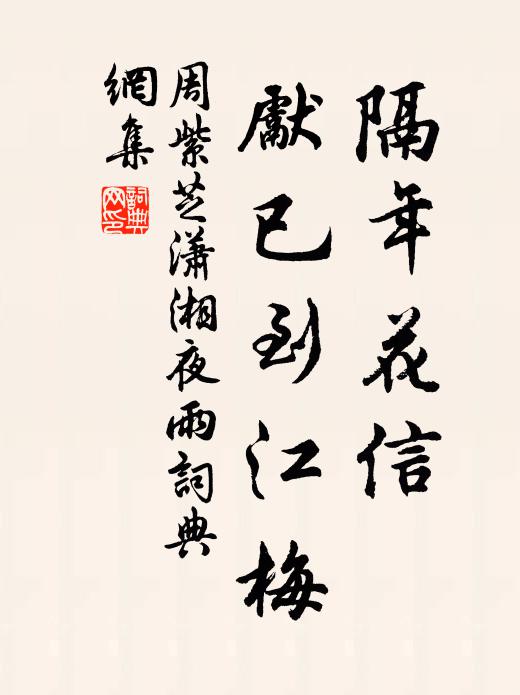 隔年花信
獻已到江梅
周紫芝潇湘夜雨詞典
網集
詞典
网印